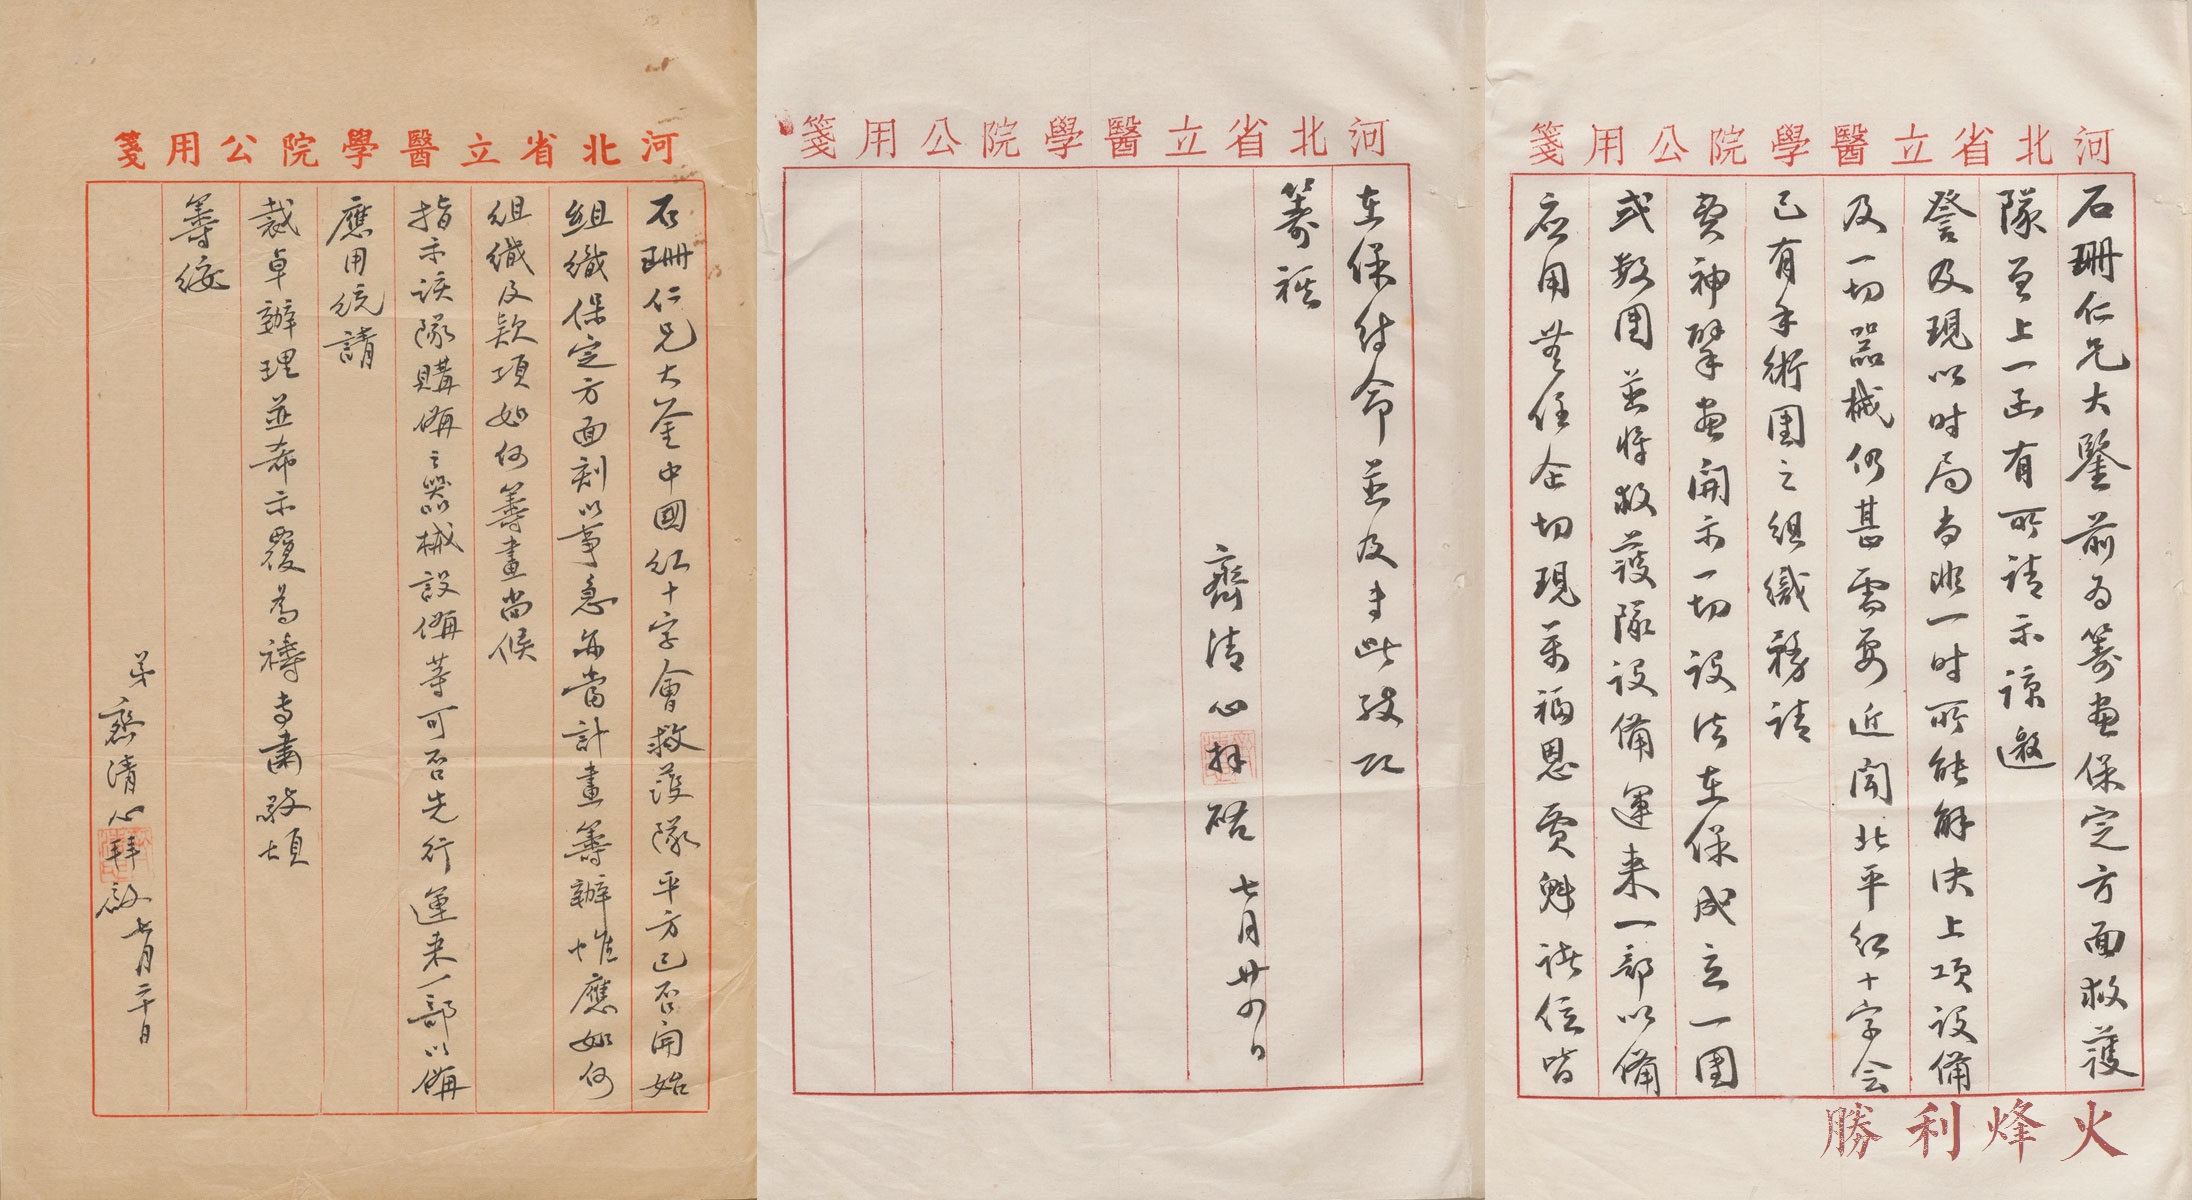 河北省立醫學院公用箋
石珊仁兄大鑒前為籌畫保定方面救護
隊曾上一函有所請示諒邀
詧及現以時局尚非一時所能解決上項設備
及一切器械仍甚需要近聞北平紅十字会
已有手術團之組織務請
費神擘畫開示一切設法在保成立一團
或數團並將救護隊設備運來一部以備
应用無任企切現張福恩賈魁諸位皆
河北省立醫學院公用箋
在保待命並及专此敬頌
籌祺
齊清心拜啓 七月廿四日
河北省立醫學院公用箋
石珊仁兄大鉴中國紅十字會救護隊平方已否開始
組織保定方面刻以事急亦當計畫籌辦惟應如何
組織及款項如何籌畫尚候
指示該隊購備之器械設備等可否先行運來一部以備
應用統請
裁卓辦理並希示覆為禱专肅敬頌
籌綏
弟齊清心拜啟 七月二十日
勝利烽火